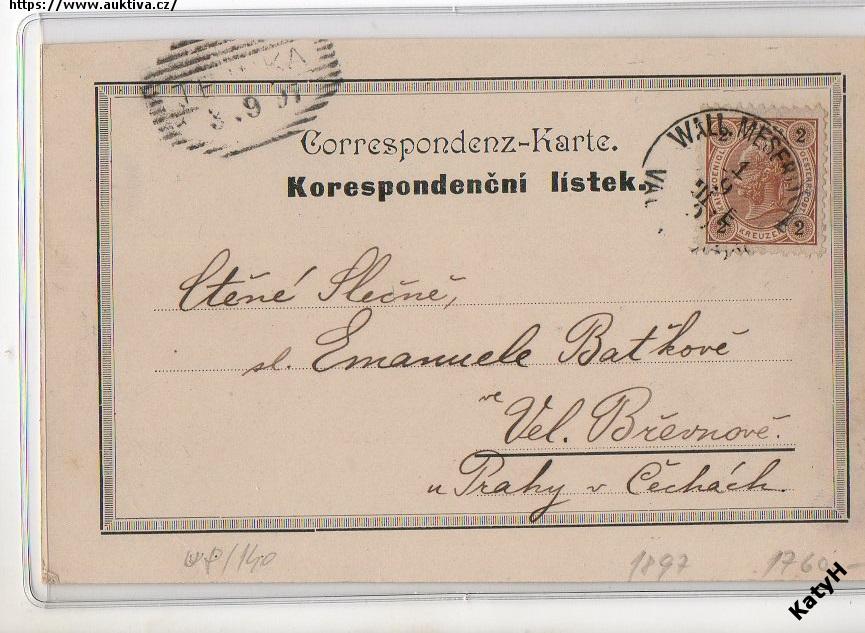 https://www.auktiva.cz/
8.9 97
Correspondenz-Karte.
Korespondenční lístek.
WALL. MESERITSCH
2 2
2 2
KREUZER
Ctěné Slečně,
sl. Emanuele Baťkově
ve
Vel. Břevnově.
u Prahy v Čechách.
1897
1760,-
KatyH